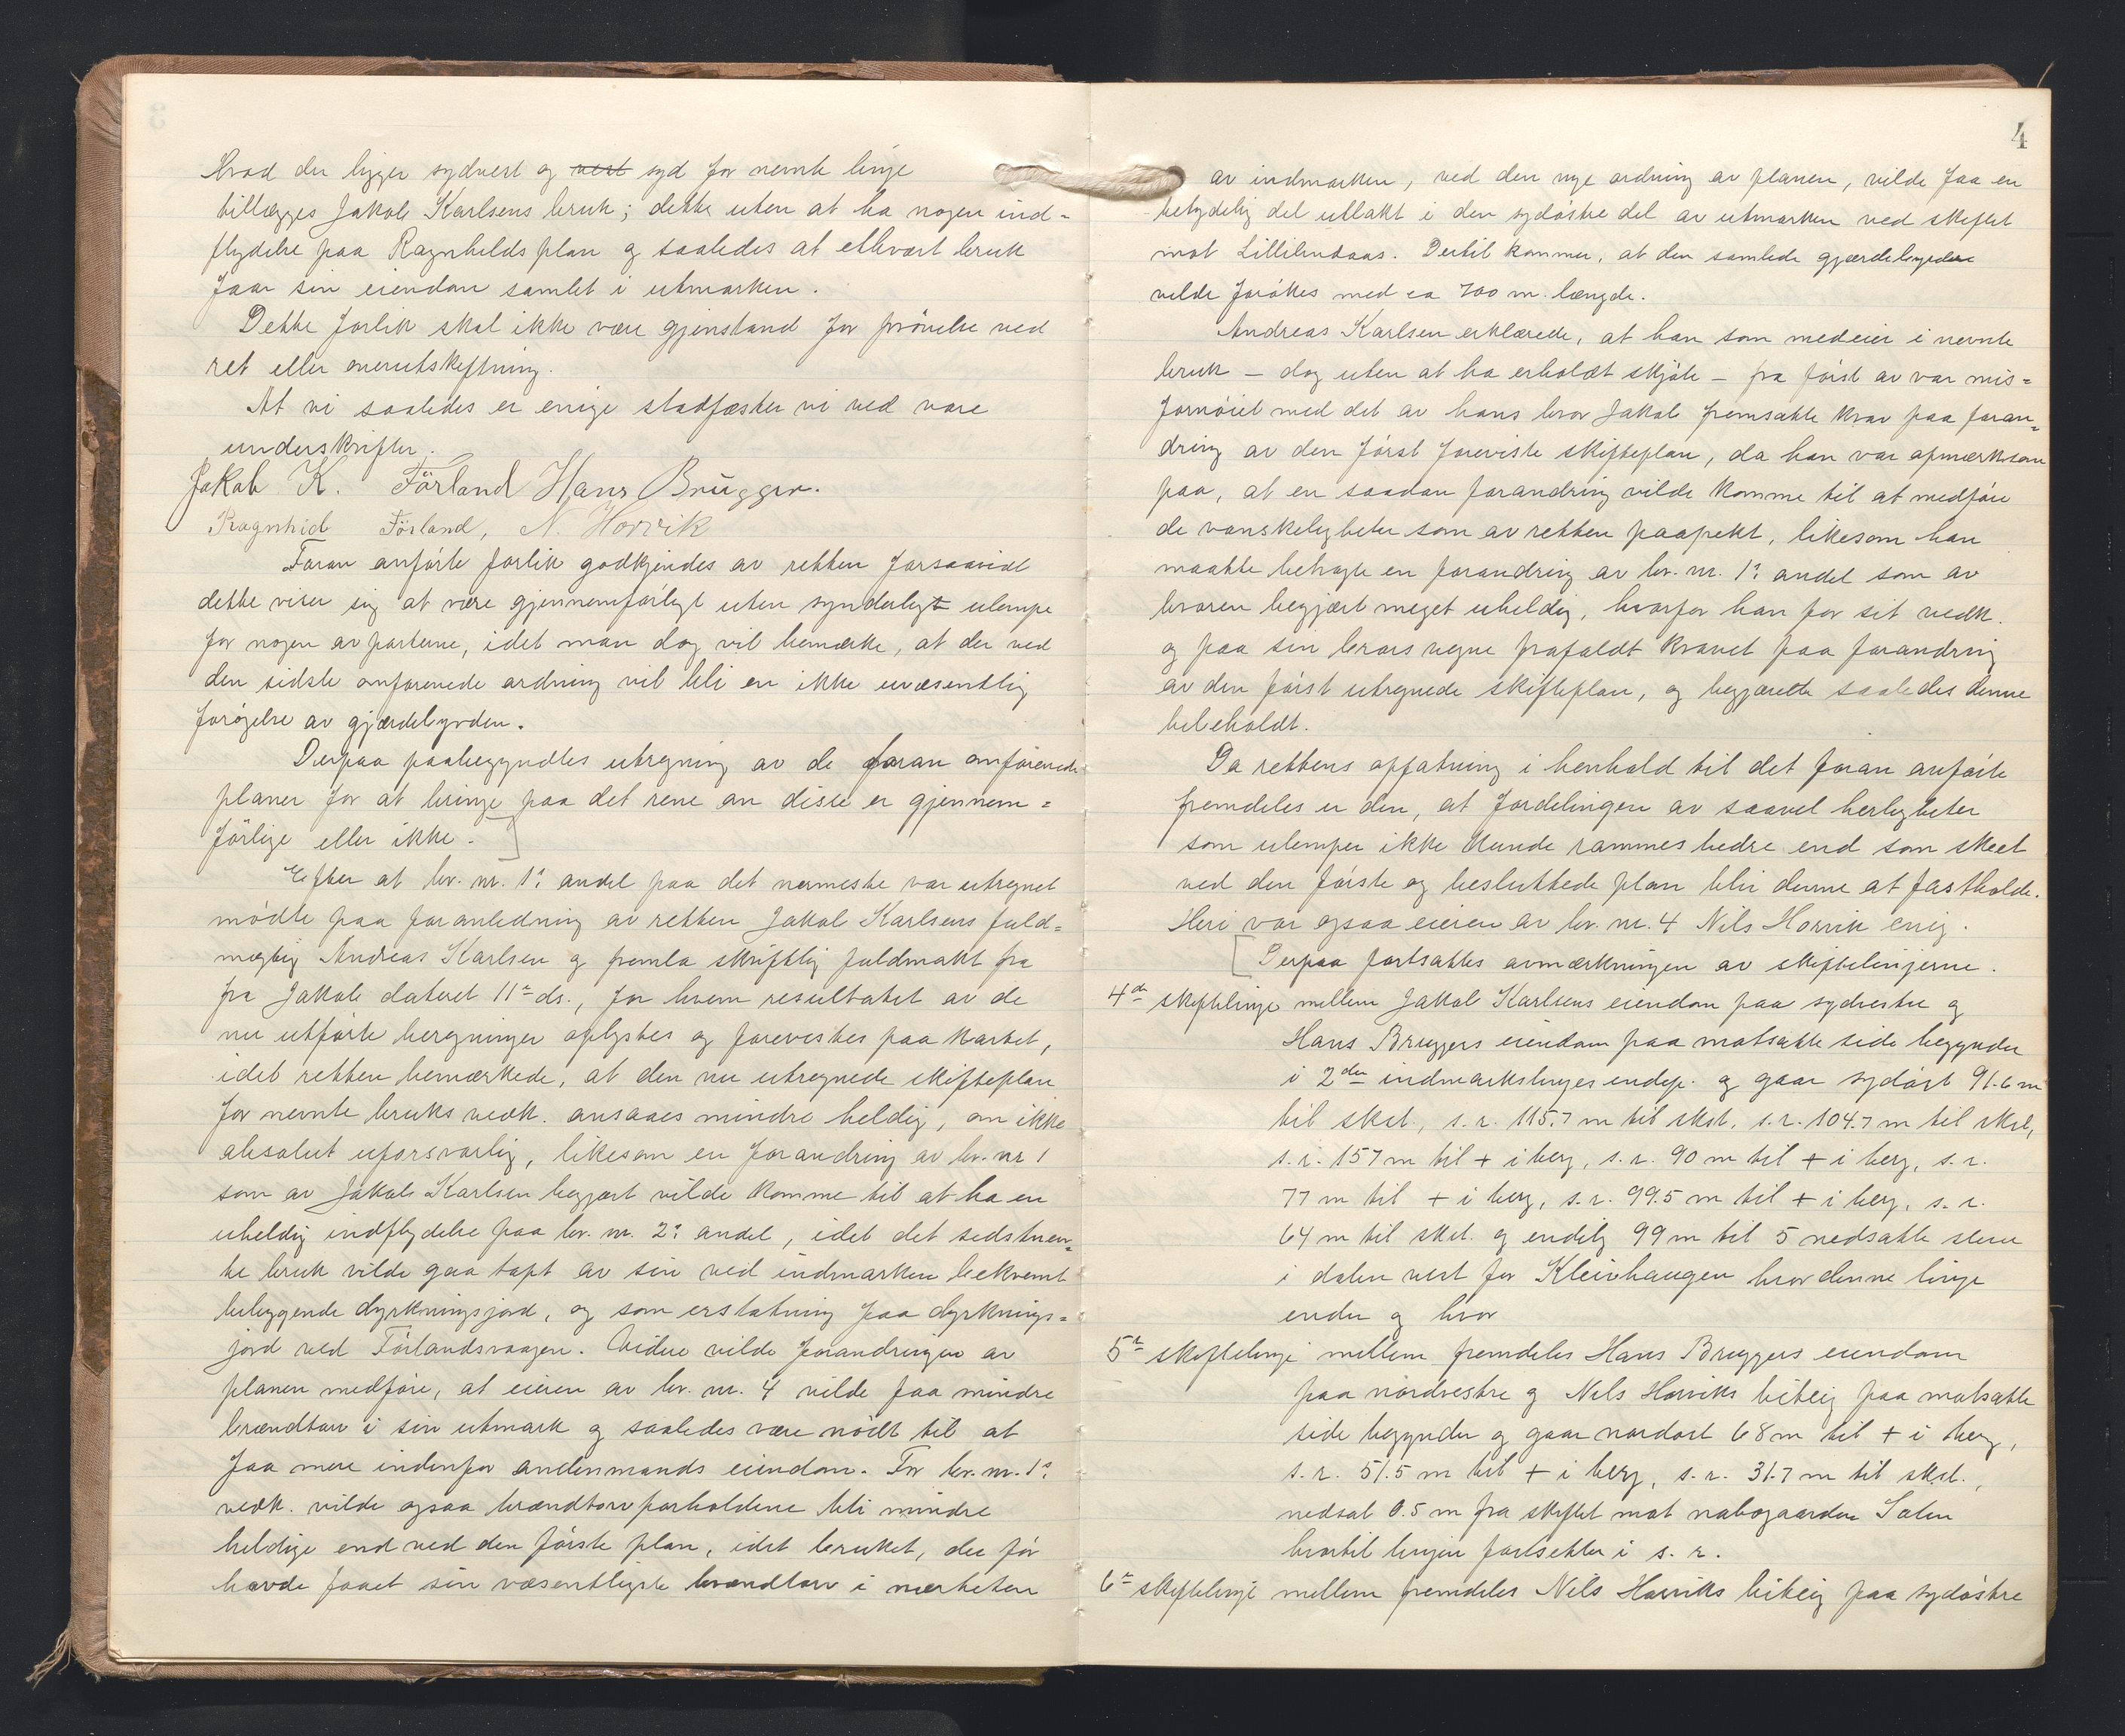 Hvad der ligger sydvest og vest syd for nevnte linje
tillægges Jakob Karlsens bruk; dette uten at ha nogen ind-
flydelse paa Ragnhilds plan og saaledes at ethvært bruk
faar sin eiendom samlet i utmarken.
Dette forlik skal ikke være gjenstand for prövelse ved
ret eller overutskiftning.
At vi saaledes er enige stadfæster vi ved vore
underskrifter.
Jakob K. Förland Hans Brügger.
Ragnhid Förland, N. Horvik
Foran anförte forlik godkjendes av retten forsaavidt
dette viser sig at være gjennemförligt uten synderligt ulempe
for nogen av parterne, idet man dog vil bemærke, at der ved
den sidste omförenede ordning vil bli en ikke uvæsentlig
forøgelse av gjærdebyrden.
Derpaa paabegyndtes utregning av de foran omförenede
planer for at bringe paa det rene om disse er gjennem-
förlige eller ikke.
Efter at br. nr. 1s andel paa det nærmeste var utregnet
mödte paa foranledning av retten Jakob Karlsens fuld-
mægtig Andreas Karlsen og fremla skriftlig fuldmakt fra
fra Jakob dateret 11te ds., for hvem resultatet av de
nu utförte beregninger oplystes og forevistes paa kartet,
idet retten bemærkede, at den nu utregnede skifteplan
for nevnte bruks vedk. ansaaes mindre heldig, om ikke
absolut uforsvarlig, likesom en forandring av br. nr 1
som av Jakob Karlsen begjært vilde komme til at ha en
uheldig indflydelse paa br. nr. 2s andel, idet det sidstnevn-
te bruk vilde gaa tapt av sin ved indmarken bekvemt
beliggende dyrkningsjord, og som erstatning faa dyrknings-
jord ved Förlandsvaagen. Videre vilde forandringen av
planen medföre, at eieren av br. nr. 4 vilde faa mindre
brændtorv i sin utmark og saaledes være nödt til at
faa mere indenfor andenmands eiendom. For br. nr. 1s
vedk. vilde ogsaa brændtorvforholdene bli mindre
heldige end ved den förste plan, idet bruket, der för
havde faaet sin væsentligste brændtorv i nærheten
4
av indmarken, ved den nye ordning av planen, vilde faa en
betydelig del utlakt i den sydöstre del av utmarken ved skiftet
mot Lillilindaas. Dertil kommer, at den samlede gjærdebyrde
vilde forökes med ca 700 m. længde.
Andreas Karlsen erklærede, at han som medeier i nevnte
bruk – dog uten at ha erholdt skjöte – fra först av var mis-
fornöiet med det av hans bror Jakob fremsatte krav paa foran-
dring av den först foreviste skifteplan, da han var opmerksom
paa, at en saadan forandring vilde komme til at medföre
de vanskeligheter som av retten paapekt, likesom han
maatte betragte en forandring av br. nr. 1s andel som av
broren begjært meget uheldig, hvorfor han for sit vedk.
og paa sin brors vegne frafaldt kravet paa forandring
av den först utregnede skifteplan, og begjærette saaledes denne
bibeholdt.
Da rettens opfatning i henhold til det foran anförte
fremdeles er den, at fordelingen av saavel herligheter
som ulemper ikke kunde rammes bedre end som skeet
ved den förste og besluttede plan blir denne at fastholde.
Heri var ogsaa eieren av br. nr. 4 Nils Horvik enig.
Derpaa fortsattes avmærkningen av skiftelinjerne.
4de skiftelinje mellem Jakob Karlsens eiendom paa sydvestre og
Hans Brüggers eiendom paa motsatte side begynder
i 2den indmarkslinjes endep. og gaar sydöst 91.6 m
til skst., s. r. 115.7 m til skst. s. r. 104.7 m til skst,
s. r. 157 m til + i berg, s. r. 90 m til + i berg, s. r.
77 m til + i berg, s. r. 99.5 m til + i berg, s. r.
64 m til skst. og endelig 99 m til 5 nedsatte stene
i dalen vest for Kleivhaugen hvor denne linje
ender og hvor
5te skiftelinje mellem fremdeles Hans Brüggers eiendom
paa nordvestre og Nils Horviks biteig paa motsatte
side begynder og gaar nordöst 68 m til + i berg,
s. r. 51.5 m til + i berg, s. r. 31.7 m til skst.,
nedsat 0.5 m fra skiftet mot nabogaarden
hvortil linjen fortsetter i s. r.
6te skiftelinje mellem fremdeles Nils Horviks biteig paa sydöstre